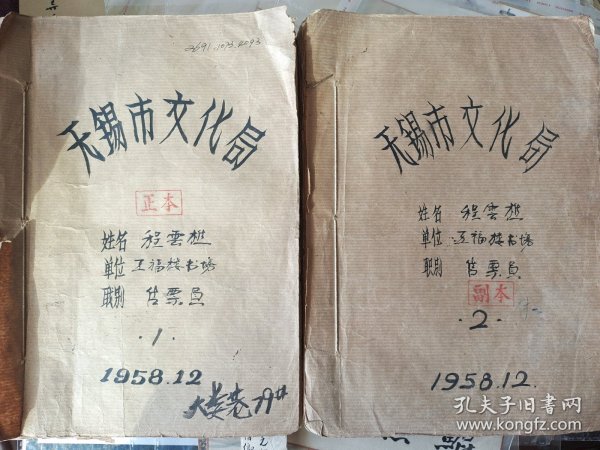 3691.1073.4093
无锡市文化局
正本
姓名 程雲樵
单位 五福楼书场
职别 售票员
·1·
1958.12
大娄巷79#
无锡市文化局
姓名 程雲樵
单位 五福楼书场
职别 售票员
副本
·2·
1958.12.
孔夫子旧书网
www.kongfz.com